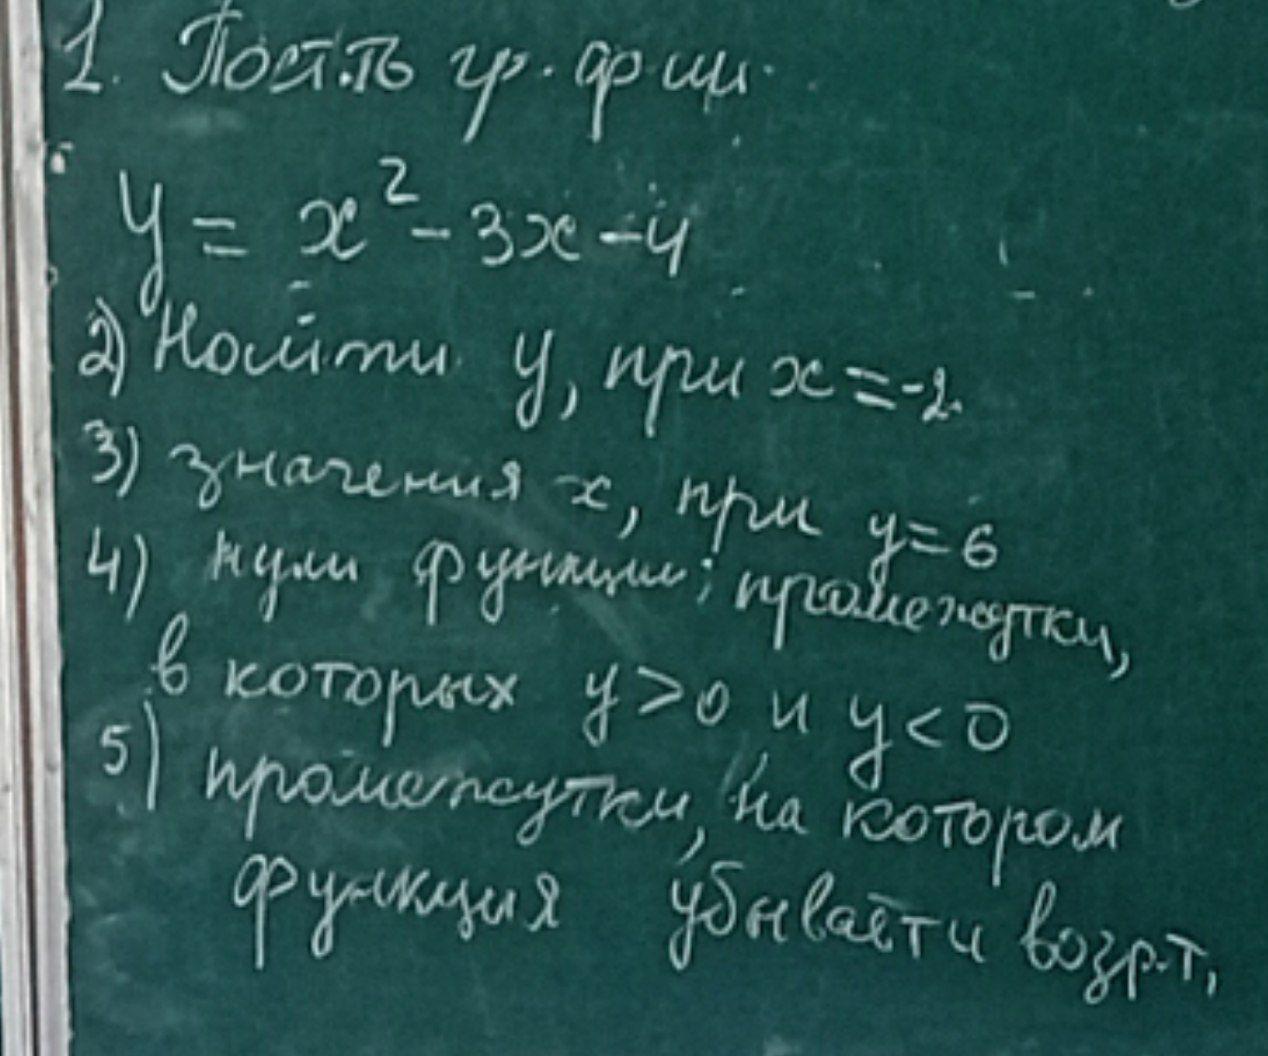 1. Пост.ть гр. ф ции.
y = x² - 3x - 4
2) Найти y, при x = -2.
3) значения x, при y = 6
4) нули функции; промежутки,
в которых y > 0 и y < 0
5) промежутки, на котором
функция убывает и возр.т,